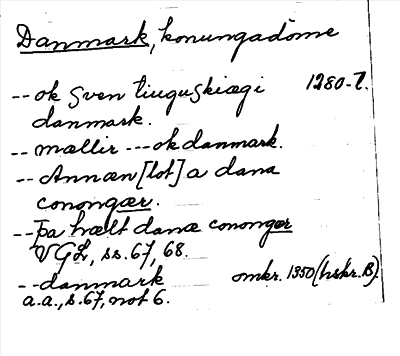 Danmark, konungadöme
--ok sven tiuguskiægi 1280-t.
danmark.
--mællir---ok danmark.
--Annæn [lot] a dana
conongær.
--þa hælt danæ conongær
VGL, ss. 67, 68.
--danmark omkr. 1350 (hskr. B).
a.a., s. 67, not 6.